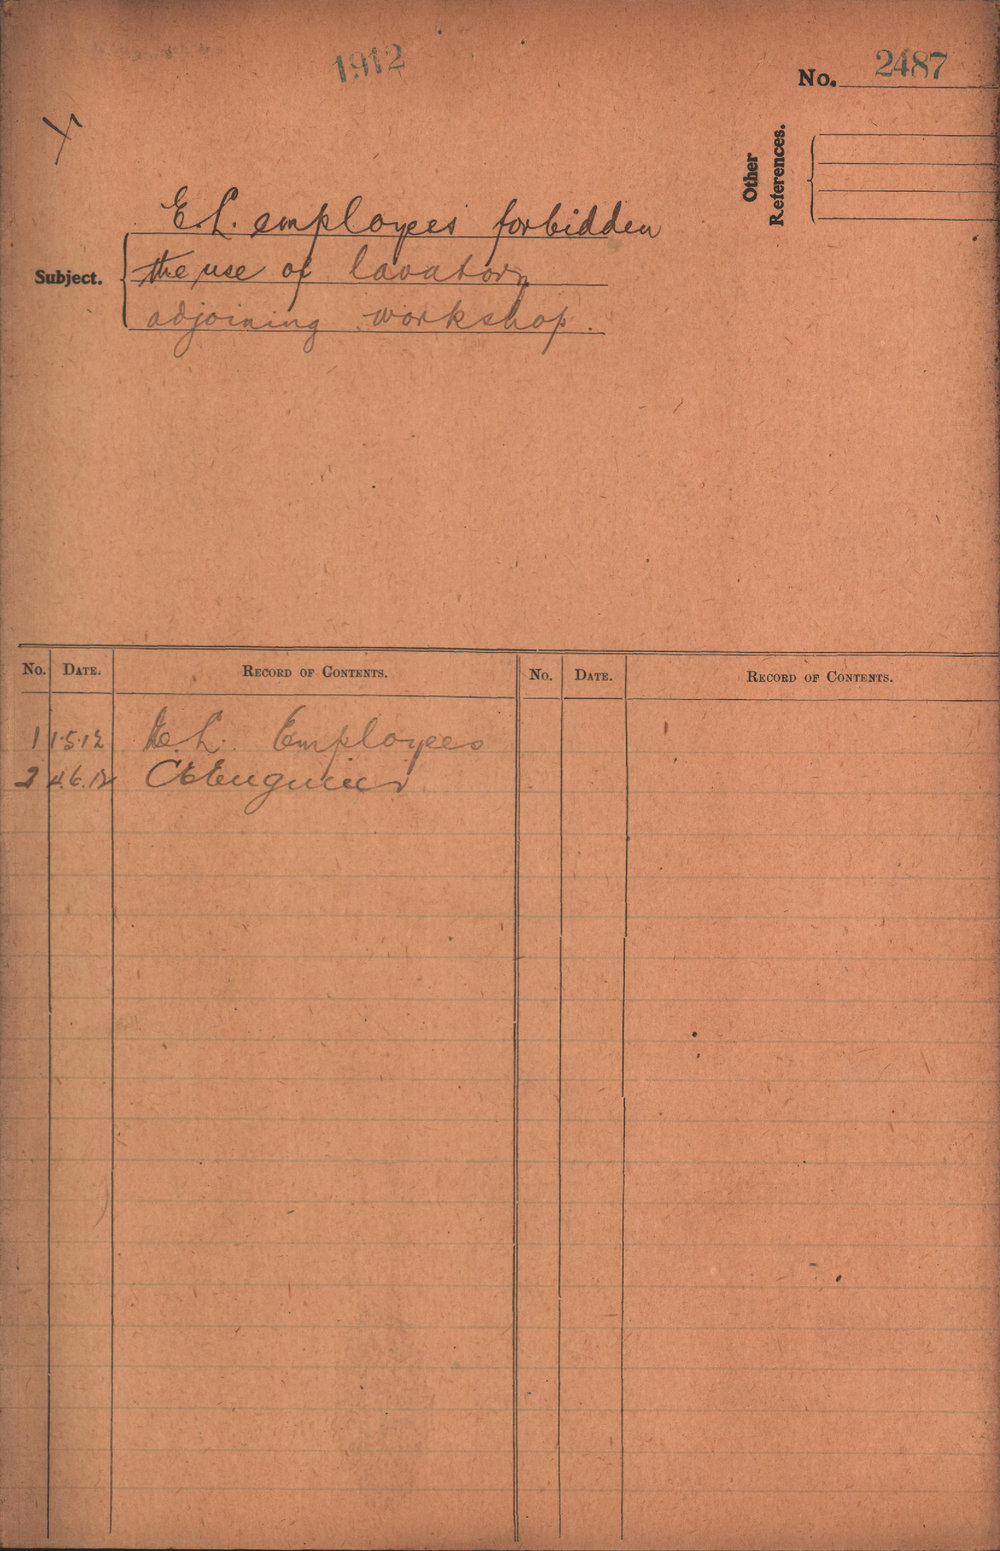 1912
No. 2487
Other References.
E.L. employees forbidden
Subject. the use of lavatory
adjoining workshop.
No. DATE. RECORD OF CONTENTS. No. DATE. RECORD OF CONTENTS.
1 1.5.12 E.L. Employees
2 4.6.12 CEEngineer